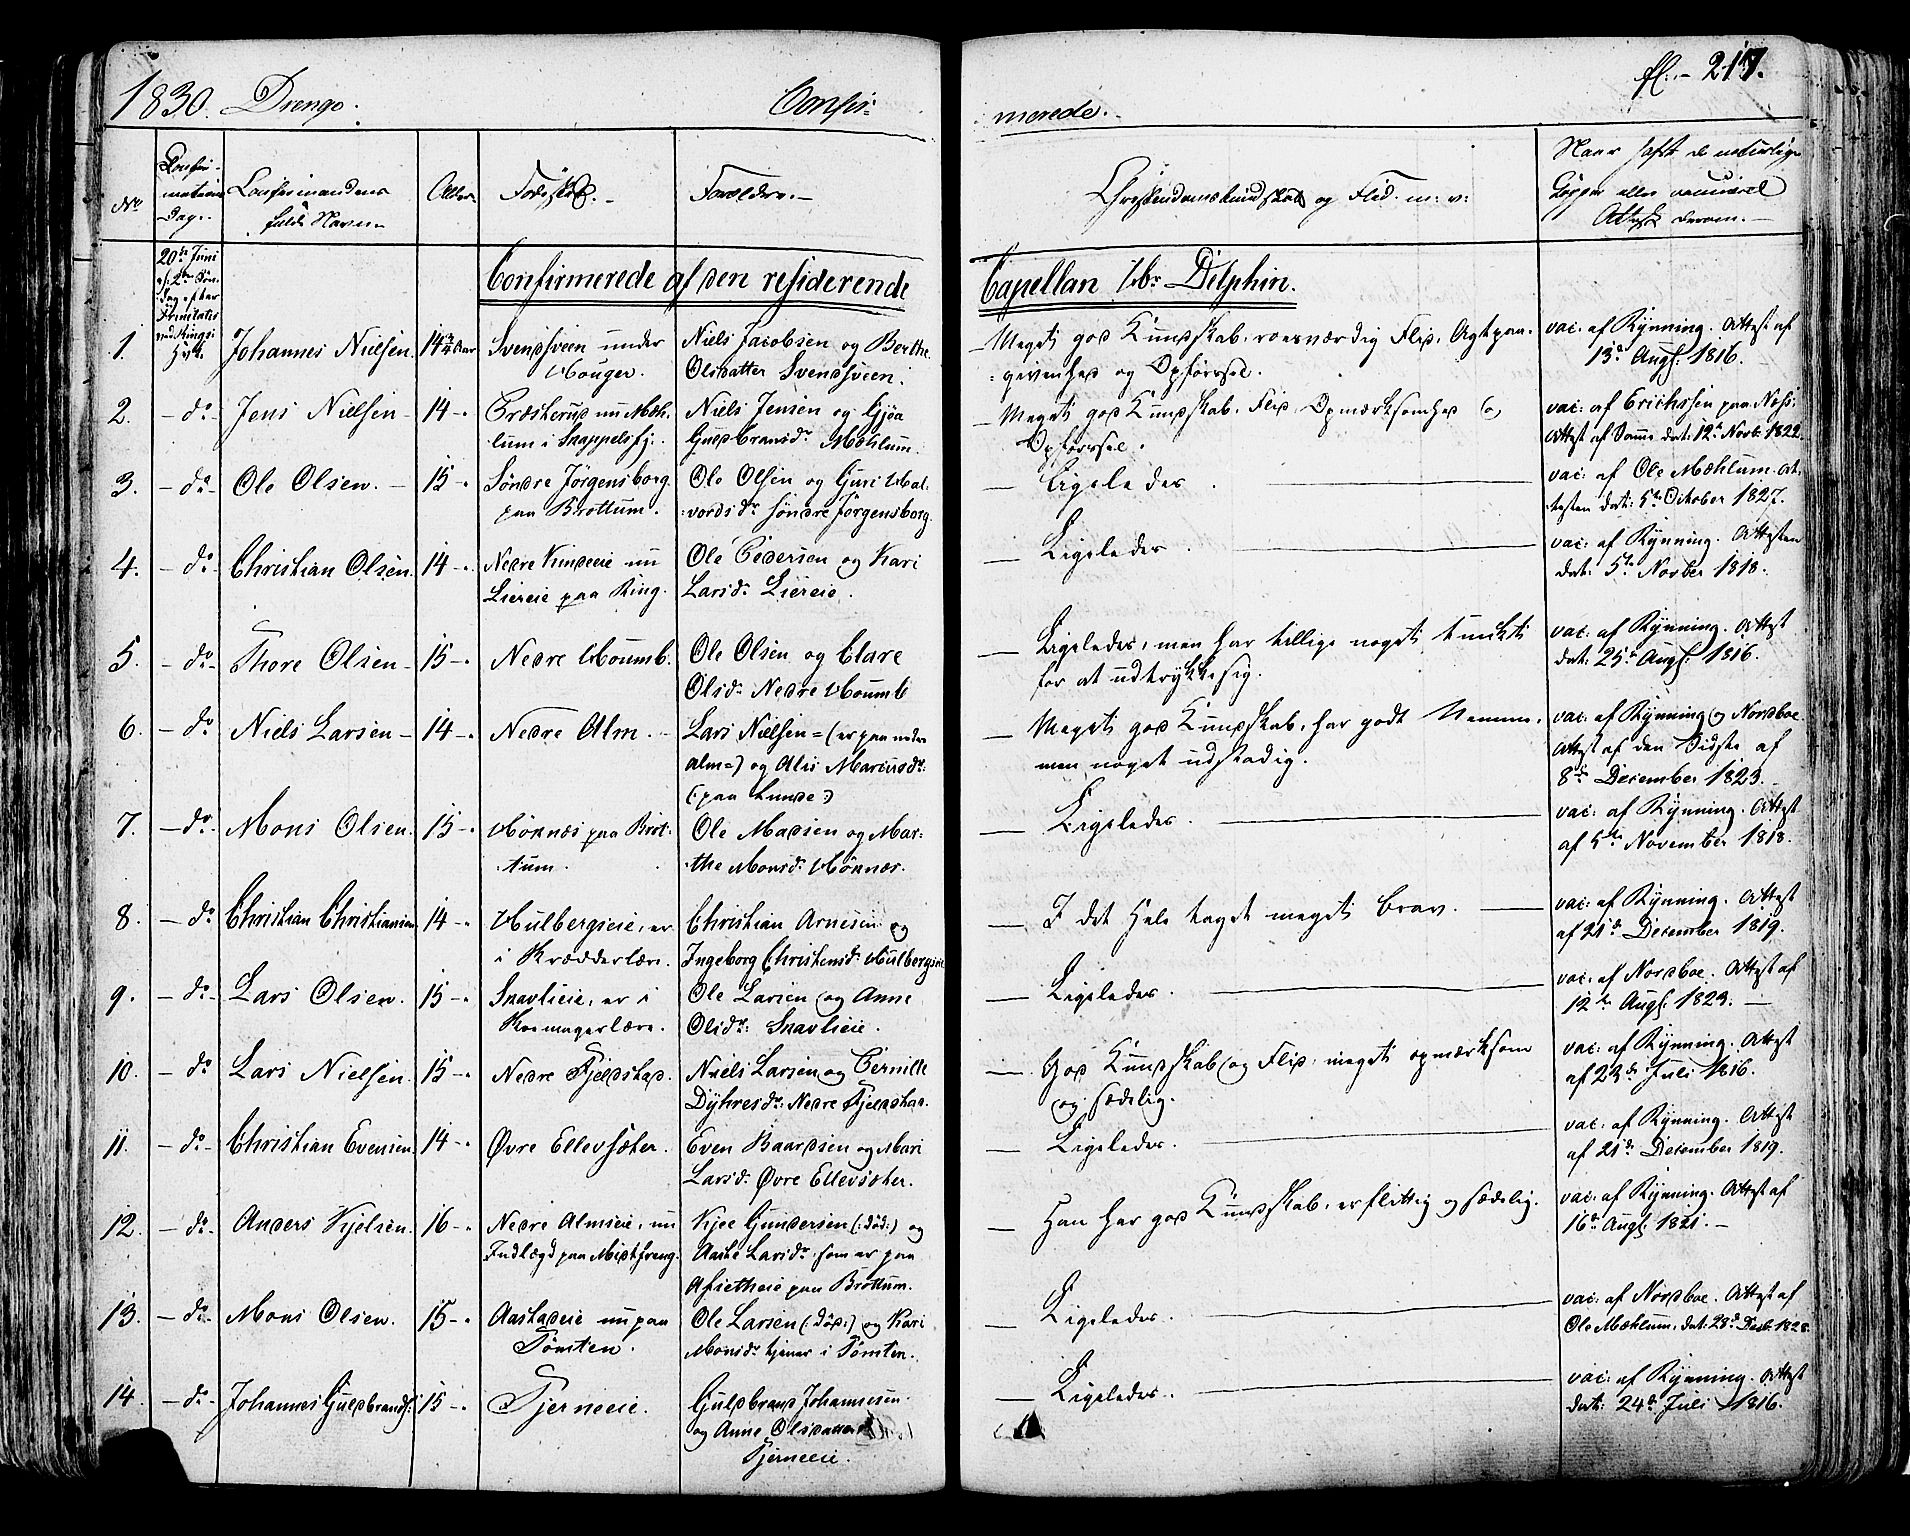 1830. Drenge. Confir=
merede.
fl. 217.
No
Confir-
mations
Dag.
Confirmandens
fulde Navn
Alder
Fødested.
Forældre.
Christendomskundskab og Flid. m: v:
Naar haft de naturlige
Kopper eller vaccineret
Attest derom.
20de Juni
Confirmerede af den residerende
Capellan Delphin.
1. Johannes Nielsen 14 3/4 Aar
Svendsveen under
Houger.
Niels Jacobsen og Berthe
Olsdatter Svendsveen.
Meget god Kundskab, roesværdig Flid, Agtpaa-
givenhed og Opførsel.
vac: af Rynning. Attest af
13de Augs: 1816.
2. do Jens Nielsen 14
Præsterud nu Mæh-
lum i
Niels Jensen og Gjøa
Guldbrandsdr Mæhlum.
Meget god Kundskab, Flid Opmærksomhed og
Opførsel.
vac: af Erichsen paa Næss:
Attest af Samme dat: 12te Novb: 1822
3. do Ole Olsen. 15
Søndre Jørgensborg
paa Brøttum.
Ole Olsen og Guri Hal-
vordsdr Søndre Jørgensborg.
Ligeledes.
vac: af Ole Mæhlum At-
testen dat: 5te October 1827.
4. do Christian Olsen 14
Nedre Kindeeie nu
Liereie paa Ring.
Ole Pedersen og Kari
Larsdr Liereie.
Ligeledes.
vac: af Rynning. Attesten
dat: 5te Novber 1818.
5. do Thore Olsen 15
Nedre Houmb.
Ole Olsen og Clare
Olsdr Nedre Houmb
Ligeledes, men har tillige noget tungt
for at udtrykke sig.
vac: af Rynning. Attest
dat: 25de Augs: 1816.
6. do Niels Larsen 14
Nedre Alm.
Lars Nielsen (er paa nedre
Alm) og Alis Marcusdr:
(: paa Lunde :)
Meget god Kundskab, har godt Nemme,
men noget udstadig.
vac: af Rynning og Nordboe
Attest af den Sidste af
8de December 1823.
7. do Mons Olsen. 15
Hønnæs paa Brøt-
tum.
Ole Madsen og Mar-
the Monsdr Hønnæs.
Ligeledes.
vac: af Rynning. Attest
af 5te November 1818.
8. do Christian Christiansen 14
Hulbergseie, er
i Skrædderlære.
Christian Arnesen og
Ingeborg Christensdr Hulbergseie
I det Hele taget meget brav.
vac: af Rynning. Attest
af 21de December 1819.
9. do Lars Olsen. 15
Snavlieie, er i
Skomagerlære.
Ole Larsen og Anne
Olsdr: Snavlieie.
Ligeledes.
vac: af Nordboe. Attest af
12te Augs: 1823.
10. do Lars Nielsen. 15
Nedre Fjeldstad.
Niels Larsen og Pernille
Dyhresdr: Nedre Fjeldstad.
God Kundskab og Flid, meget opmærksom
og sædelig.
vac: af Rynning. Attest
af 23de Juli 1816.
11. do Christian Evensen 14
Øvre Ellevsæter.
Even Baardsen og Mari
Larsdr Øvre Ellevsæter.
Ligeledes.
vac: af Rynning. Attest
af 21de December 1819.
12. do Anders Kjelsen 16
Nedre Almseie, nu
Indlægd paa
Kjel Gundersen (: død :) og
Aaste Larsdr som er paa
paa Brøttum.
Han har god Kundskab, er flittig og sædelig.
vac: af Rynning. Attest af
16de Augs: 1821.
13. do Mons Olsen. 15
Aastadeie nu paa
Tømten.
Ole Larsen (: død :) og Kari
Monsdr tjener i Tømten.
Ligeledes.
vac: af Nordboe. Attest af
Ole Mæhlum, dat: 23de Decb: 1828
14. do Johannes Guldbrands: 15
Tjerneeie.
Guldbrand Johannesen
og Anne Olsdatter
Tjerneeie.
Ligeledes.
vac: af Rynning. Attest
dat: 24de Juli 1816.